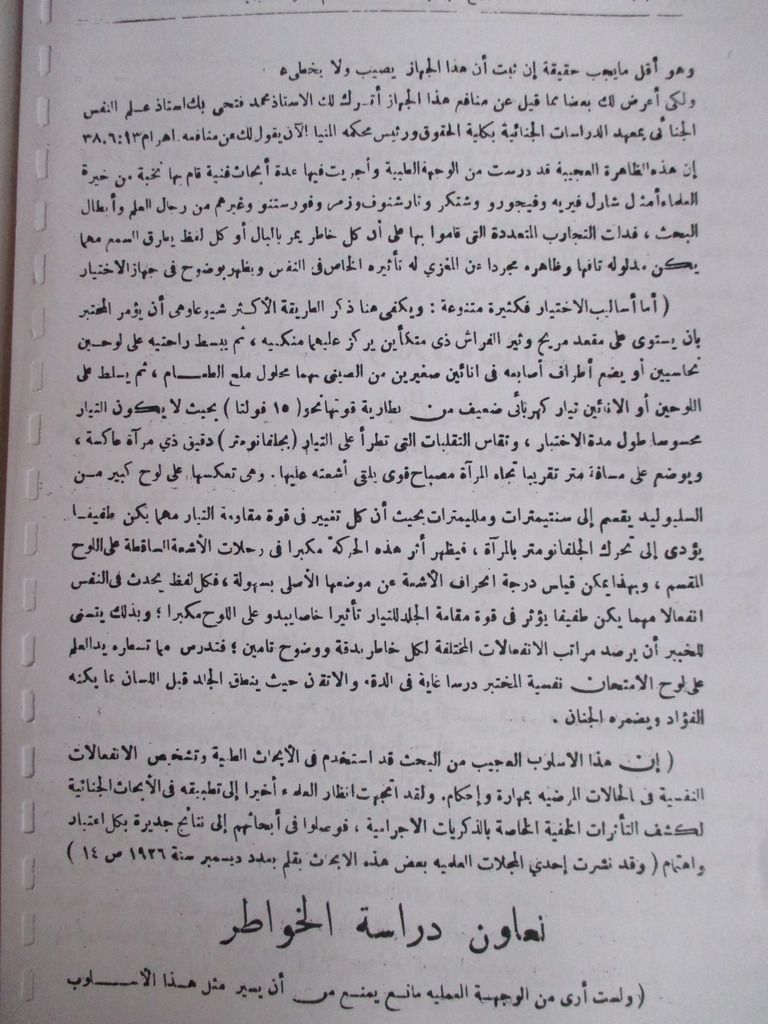 وهو أقل مايجب حقيقة إن ثبت أن هذا الجهاز يصيب ولا يخطىء .
ولكى أعرض لك بعضا مما قيل عن منافع هذا الجهاز أترك لك الاستاذ محمد فتحى بك استاذ علم النفس
الجنائى بمعهد الدراسات الجنائية بكلية الحقوق ورئيس محكمه المنيا الآن يقول لك عن منافعه . اهرام ٣٨٠٦٠١٣
إن هذه الظاهرة العجيبة قد درست من الوجهة الطبية وأجريت فيها عدة أبحاث فنية قام بها نخبة من خيرة
العلماء أمثال شارل فيريه وفيجورو وشتكر وتارشنوف وزمر وفورستنو وغيرهم من رجال العلم وأبطال
البحث ، فدلت التجارب المتعددة التى قاموا بها على أن كل خاطر يمر بالبال أو كل لفظ يطرق السمع مهما
يكن مدلوله تافها وظاهره مجردا عن المغزي له تأثيره الخاص فى النفس ويظهر بوضوح فى جهاز الاختيار
( أما أساليب الاختيار فكثيرة متنوعة : ويكفى هنا ذكر الطريقة الأكثر شيوعا وهى أن يؤمر المختبر
بان يستوى على مقعد مريح وثير الفراش ذى متكأين يركز عليهما منكبيه ، ثم يبسط راحتيه على لوحين
نحاسيين أو يضم أطراف أصابعه فى انائين صغيرين من الصينى بهما محلول ملح الطعام ، ثم يسلط على
اللوحين أو الانائين تيار كهربائى ضعيف من بطارية قوتها نحو ( ١٥ فولتا ) بحيث لا يكون التيار
محسوسا طول مدة الاختبار ، وتقاس التقلبات التى تطرأ على التيار ( بجلفانومتر ) دقيق ذي مرآة عاكسة ،
ويوضع على مسافة متر تقريبا تجاه المرآة مصباح قوى يلقى أشعته عليها . وهى تعكسها على لوح كبير من
السليوليد يقسم إلى سنتيمترات ومليمترات بحيث أن كل تغيير فى قوة مقاومة التيار مهما يكن طفيفا
يؤدى إلى تحرك الجلفانومتر بالمرآة ، فيظهر أثر هذه الحركة مكبرا فى رحلات الأشعة الساقطة على اللوح
المقسم ، وبهذا يمكن قياس درجة انحراف الأشعة عن موضعها الأصلى بسهولة ، فكل لفظ يحدث فى النفس
انفعالا مهما يكن طفيفا يؤثر فى قوة مقامة الجلد للتيار تأثيرا خاصا يبدو على اللوح مكبرا ؛ وبذلك يتسنى
للخبير أن يرصد مراتب الانفعالات المختلفة لكل خاطر بدقة ووضوح تامين ؛ فتدرس مما تسطره يد العلم
على لوح الامتحان نفسية المختبر درسا غاية فى الدقة والاتقان حيث ينطق الجلد قبل اللسان بما يكنه
الفؤاد ويضمره الجنان .
( إن هذا الاسلوب العجيب من البحث قد استخدم فى الأبحاث الطبية وتشخيص الانفعالات
النفسية فى الحالات المرضيه بمهارة وإحكام . ولقد اتجهت انظار العلماء أخيرا إلى تطبيقه فى الأبحاث الجنائية
لكشف التأثرات الخفية الخاصة بالذكريات الاجرامية ، فوصلوا فى أبحاثهم إلى نتائج جديرة بكل اعتبار
واهتمام ( وقد نشرت إحدي المجلات العلميه بعض هذه الابحاث بقلم بعدد ديسمبر سنة ١٩٢٦ ص ١٤ )
تعاون دراسة الخواطر
( ولست أرى من الوجهة العمليه مانع يمنع من أن يسير مثل هذا الأسلوب